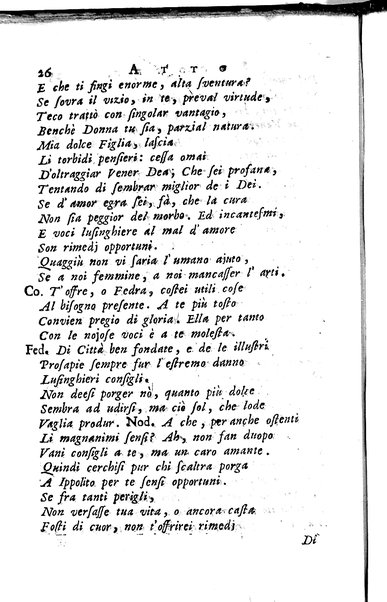 26 ATTO
E che ti fingi enorme, alta ſventura?
Se ſovra il vizio, in te, prèval virtude,
Teco trattò con ſingolar vantagio,
Benchè Donna tu ſia, parzial natura.
Mia dolce Figlia, laſcia
Li torbidi penſieri: ceſſa omai
D'oltraggiar Vener Dea; Che ſei profana,
Tentando di ſembrar miglior de i Dei.
Se d'amor egra ſei, fà, che la cura
Non ſia peggior del morbo. Ed incanteſmi,
E voci luſinghiere al mal d'amore
Son rimedj opportuni.
Quaggiù non vi ſaria l'umano ajuto,
Se a noi femmine, a noi mancaſſer l'arti.
Co. T'offre, o Fedra, coſtei utili coſe
Al biſogno preſente. A te più toſto
Convien pregio di gloria. Ella per tanto
Con le nojoſe voci è a te moleſta.
Fed. Di Città ben fondate, e de le illuſtri
Proſapie ſempre fur l'eſtremo danno
Luſinghieri conſigli.
Non deeſi porger nò, quanto più dolce
Sembra ad udirſi, ma ciò ſol, che lode
Vaglia produr. Nod. A che, per anche oſtenti
Li magnanimi ſenſi? Ah, non fan duopo
Vani conſigli a te, ma un caro amante.
Quindi cerchiſi pur chi ſcaltra porga
A Ippolito per te ſenſi opportuni.
Se fra tanti perigli,
Non verſaſſe tua vita, o ancora caſta
Foſti di cuor, non t'offrirei rimedj
Di